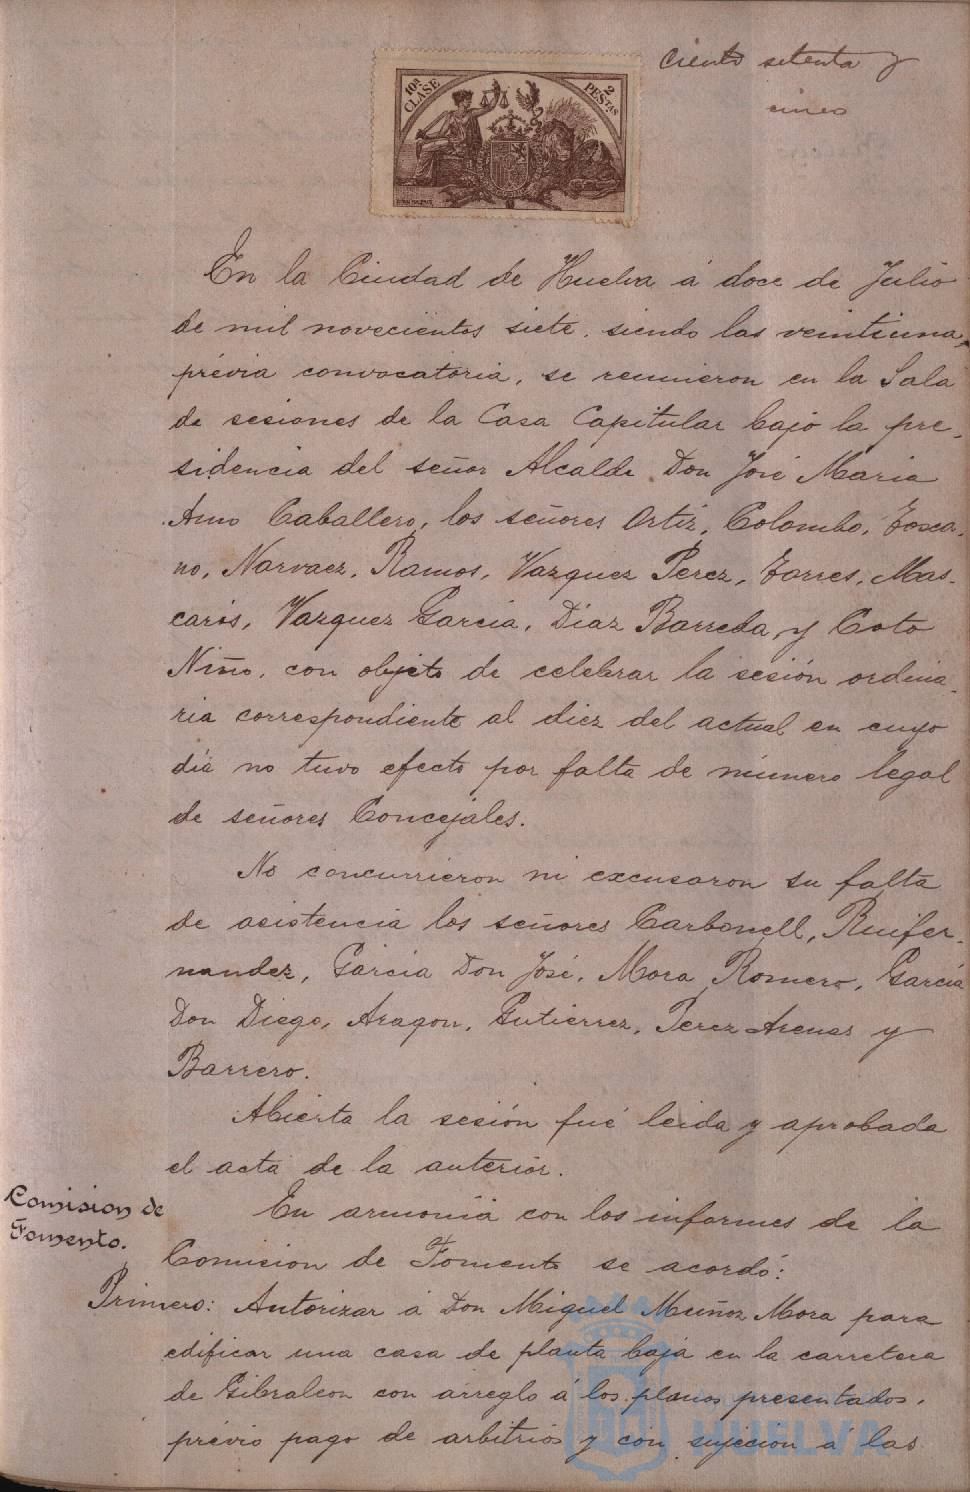 ciento setenta y
cinco
10ª CLASE
2 PESETAS
En la Ciudad de Huelva á doce de Julio
de mil novecientos siete, siendo las veintiuna,
prévia convocatoria, se reunieron en la Sala
de sesiones de la Casa Capitular bajo la pre-
sidencia del señor Alcalde Don José Maria
Amo Caballero, los señores Ortiz, Colombo, Tosca-
no, Narvaez, Ramos, Vazquez Perez, Torres, Mas-
carós, Vazquez Garcia, Diaz Barreda, y Coto
Niño, con objeto de celebrar la sesión ordina-
ria correspondiente al diez del actual en cuyo
día no tuvo efecto por falta de número legal
de señores Concejales.
No concurrieron ni excusaron su falta
de asistencia los señores Carbonell, Ruifer-
nandez, Garcia Don José, Mora Romero, Garcia
Don Diego, Aragon, Gutierrez, Perez Arenas y
Barrero.
Abierta la sesión fué leida y aprobada
el acta de la anterior.
Comision de
Fomento.
En armonía con los informes de la
Comision de Fomento se acordó:
Primero: Autorizar á Don Miguel Muñoz Mora para
edificar una casa de planta baja en la carretera
de Gibraleon con arreglo á los planos presentados,
prévio pago de arbitrios y con sujecion á las
HUELVA